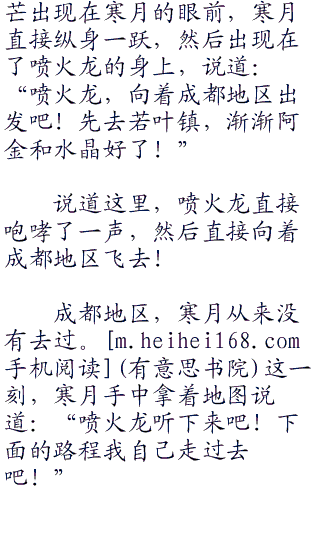 芒出现在寒月的眼前，寒月
直接纵身一跃，然后出现在
了喷火龙的身上，说道：
“喷火龙，向着成都地区出
发吧！先去若叶镇，渐渐阿
金和水晶好了！”
说道这里，喷火龙直接
咆哮了一声，然后直接向着
成都地区飞去！
成都地区，寒月从来没
有去过。[m.heihei168.com
手机阅读](有意思书院)这一
刻，寒月手中拿着地图说
道：“喷火龙听下来吧！下
面的路程我自己走过去
吧！”